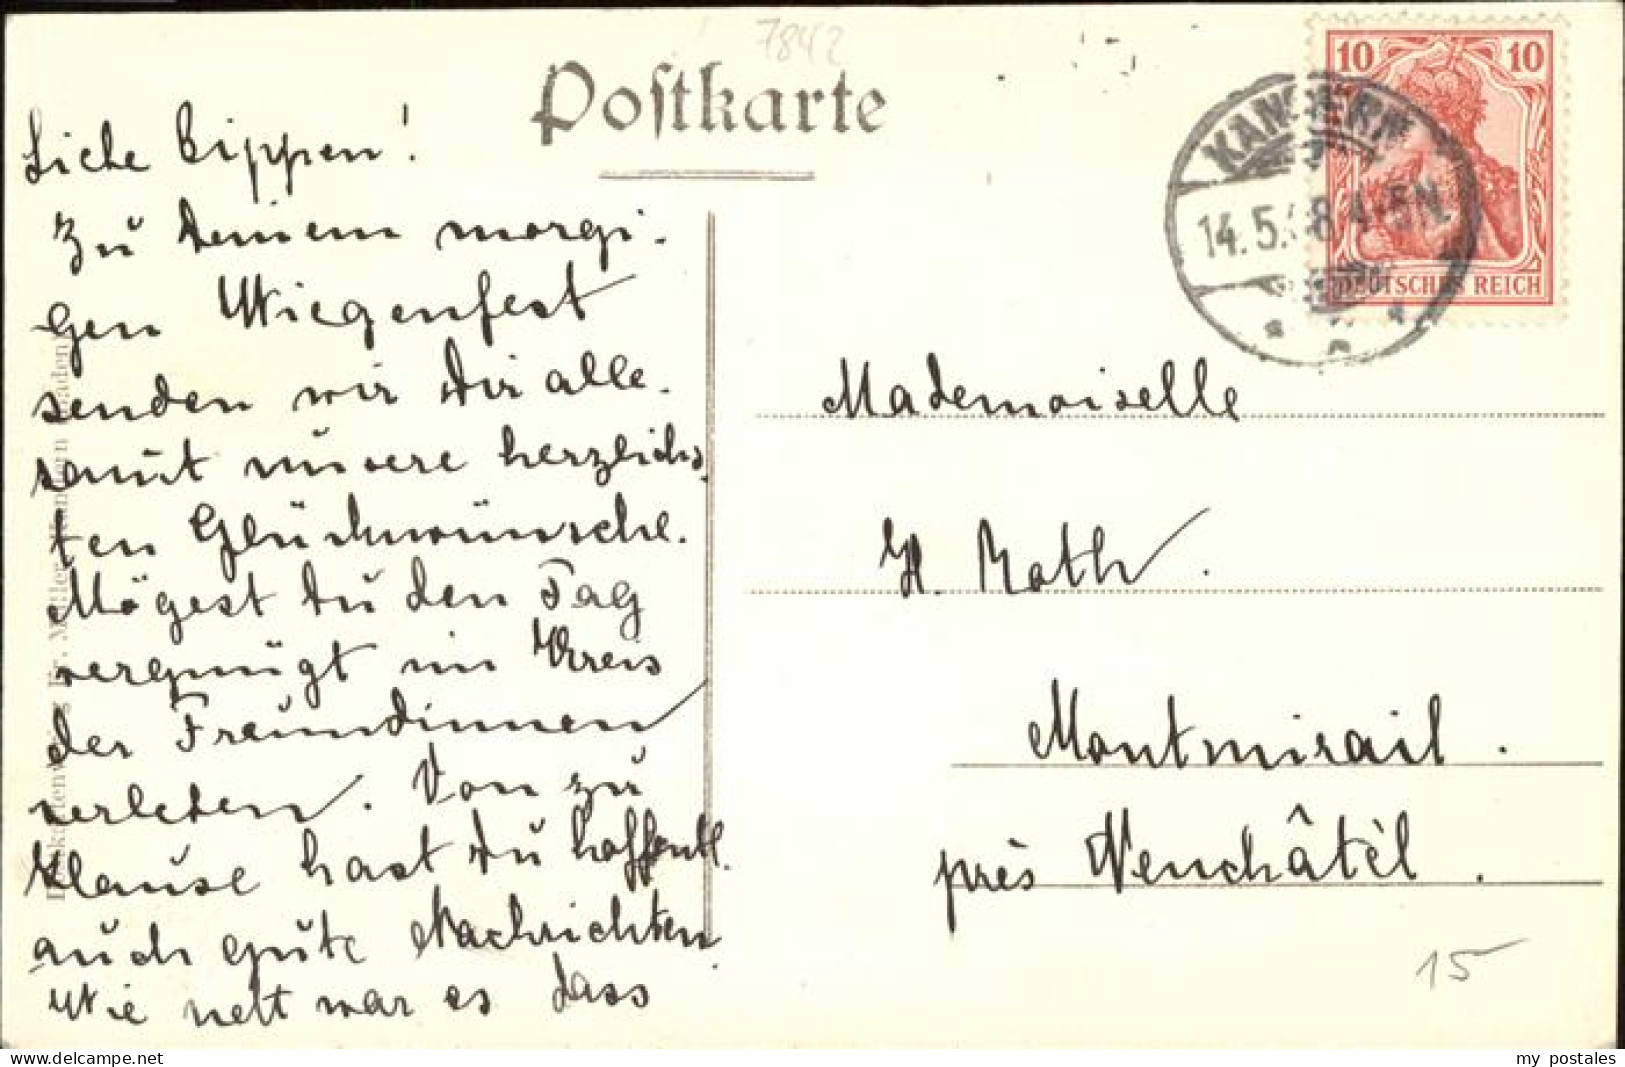 7842
Postkarte
Liebe Bippen!
Zu Deinem morgi-
gen Wiegenfest
senden wir Dir alle-
samt unsere herzlichs-
ten Glückwünsche.
Mögest Du den Tag
vergnügt im Kreis
der Freundinnen
verleben. Von zu
Hause hast Du hoffentl.
auch gute Nachrichten.
Wie nett war es dass
10 10
DEUTSCHES REICH
KANDERN
14.5. 8 4-5N.
Mademoiselle
H. Roth.
Montmirail.
près Neuchâtèl.
15
Müller Kandern (Baden)
my postales